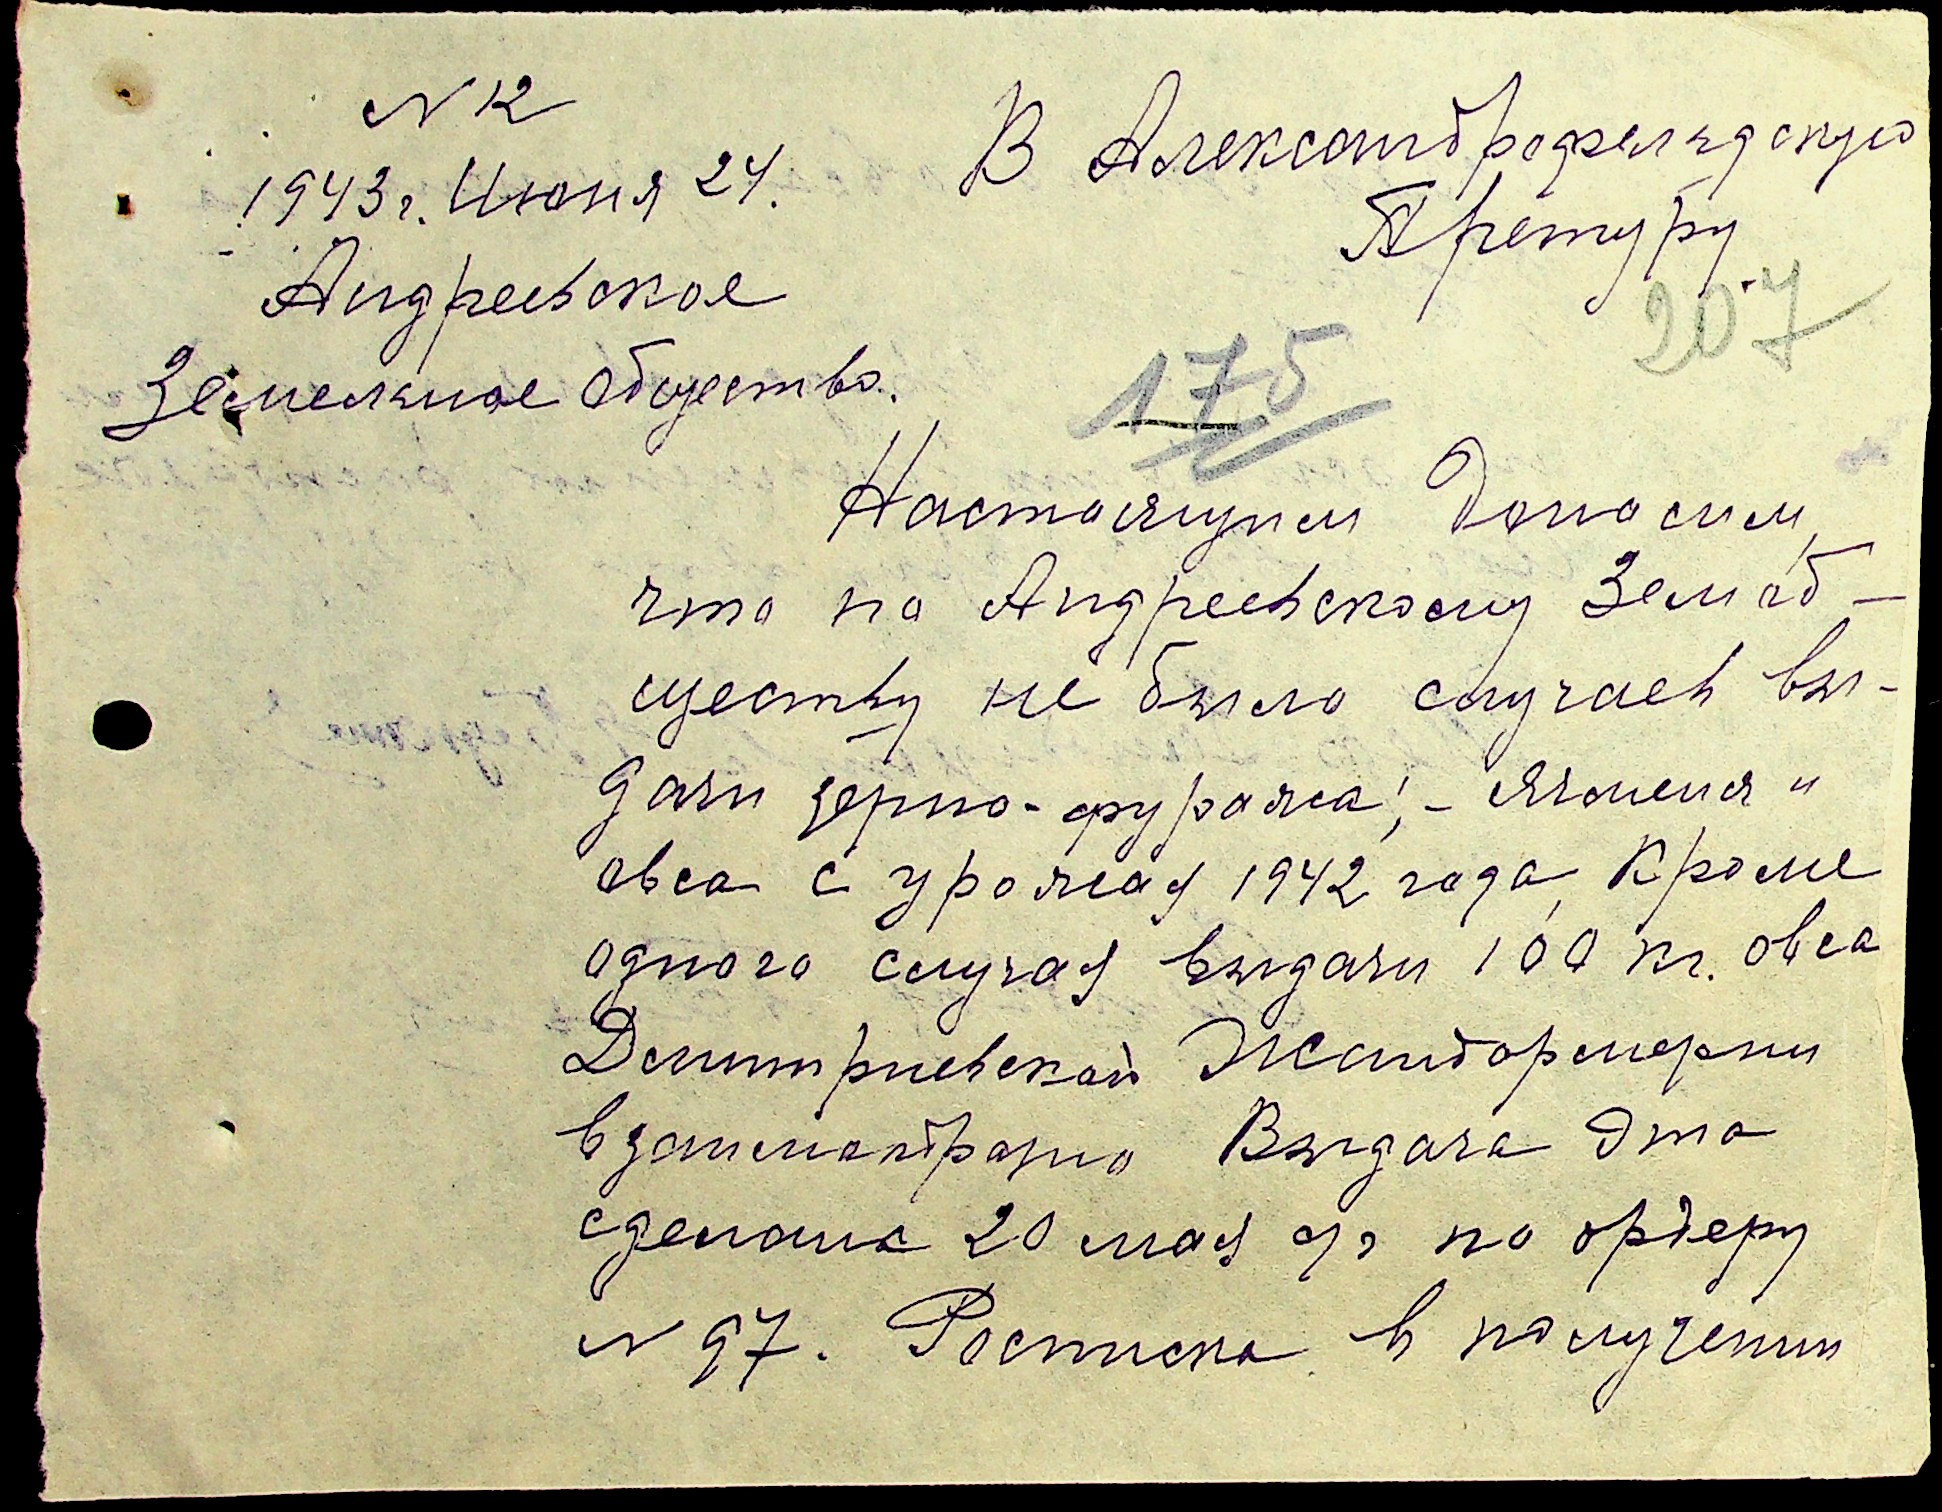 N 12
1943 г. Июня 24.
Андреевское
Земельное общество.
В Александрфельдскую
Претуру
207
175
Настоящим Доносим,
что по Андреевскому Земоб-
ществу не было случаев вы-
дачи зерно-фуража; - Ячменя и
овса с урожая 1942 года, Кроме
одного случая выдачи 100 кг. овса
Дмитриевской Жандармерии
взаимообразно Выдача эта
сделана 20 мая с/г по ордеру
N 97. Росписка в получении